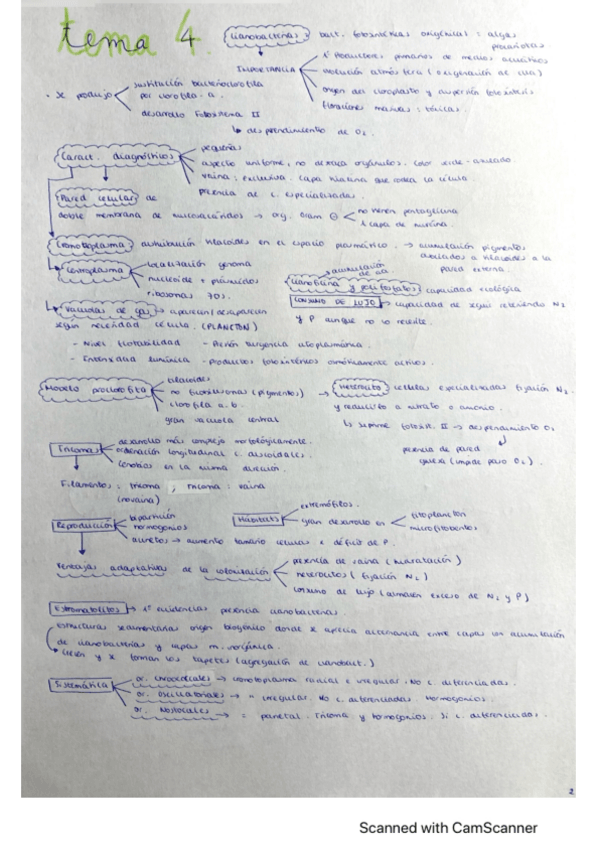 tema 4.
Cianobacterias bact. fotosintéticas originial : algas procariotas
IMPORTANCIA
1º Productores primarios de medios acuáticos
evolución atmósfera (originación de
origen del cloroplasto y aparición fotosíntesis
floraciones masivas : tóxicas.
• Se produjo
sustitución bacterioclorofila por clorofila - a.
desarrollo Fotosistema II
↳ desprendimiento de O₂.
Caract. diagnósticos
pequeñas
aspecto uniforme, no destaca orgánulos. Color verde-azulado
vaina : exclusiva. Capa hialina que rodea la célula.
presencia de c. especializadas.
Pared celular de
doble membrana de mucosacáridos → org. Gram ⊖
no tienen pentaglicina
↓ capa de mureína.
Cromatoplasma : acumulación tilacoides en el espacio plasmático. → acumulación pigmentos
asociados a tilacoides a la
pared externa
Centroplasma
localización genoma
nucleoide + plásmidos
ribosomas 70s.
acumulación de aa
Cianoficina y polifosfatos capacidad ecológica
CONSUMO DE LUJO → capacidad de seguir recibiendo N2
y P aunque no lo necesite.
Vacuolas de gas → aparición/desaparición
según necesidad célula. (PLANCTON)
- Nivel flotabilidad - Presión turgencia citoplasmática.
- Intensidad lumínica - productos fotosintéticos osmóticamente activos.
Modelo proclorofita
tilacoides
no ficobilisomas (pigmentos)
clorofila a, b.
gran vacuola central
Heterocito células especializadas fijación N₂
y reducirlo a nitrato o amonio.
↳ suprime fotosist. II → desprendimiento O₂
presencia de pared
gruesa (impide paso O₂).
Tricoma
desarrollo más complejo morfológicamente.
ordenación longitudinal c. discoidales.
cenobios en la misma dirección.
Filamentos : tricoma ; tricoma : vaina
(no vaina)
Reproducción
bipartición
hormogonios
acinetos → aumento tamaño células x déficit de P.
Hábitats
extremófilos.
gran desarrollo en
fitoplancton
microfitobentos
Ventajas adaptativas de la colonización
presencia de vaina (hidratación)
heterocitos (fijación N₂)
consumo de lujo (almacén exceso de N₂ y P)
Estromatolitos → 1º evidencias presencia cianobacterias.
estructuras sedimentarias origen biogénico donde se aprecia alternancia entre capas con acumulación
de cianobacterias y capas m. inorgánica.
crecen y se forman los tapetes (agregación de cianobact.)
Sistemática
or. Chroococcales → cromatoplasma parietal e irregular. No c. diferenciadas.
or. Oscillatoriales → " irregular. No c. diferenciadas. Hormogonios.
or. Nostocales → = parietal. Tricoma y hormogonios. Sí c. diferenciadas.
2
Scanned with CamScanner